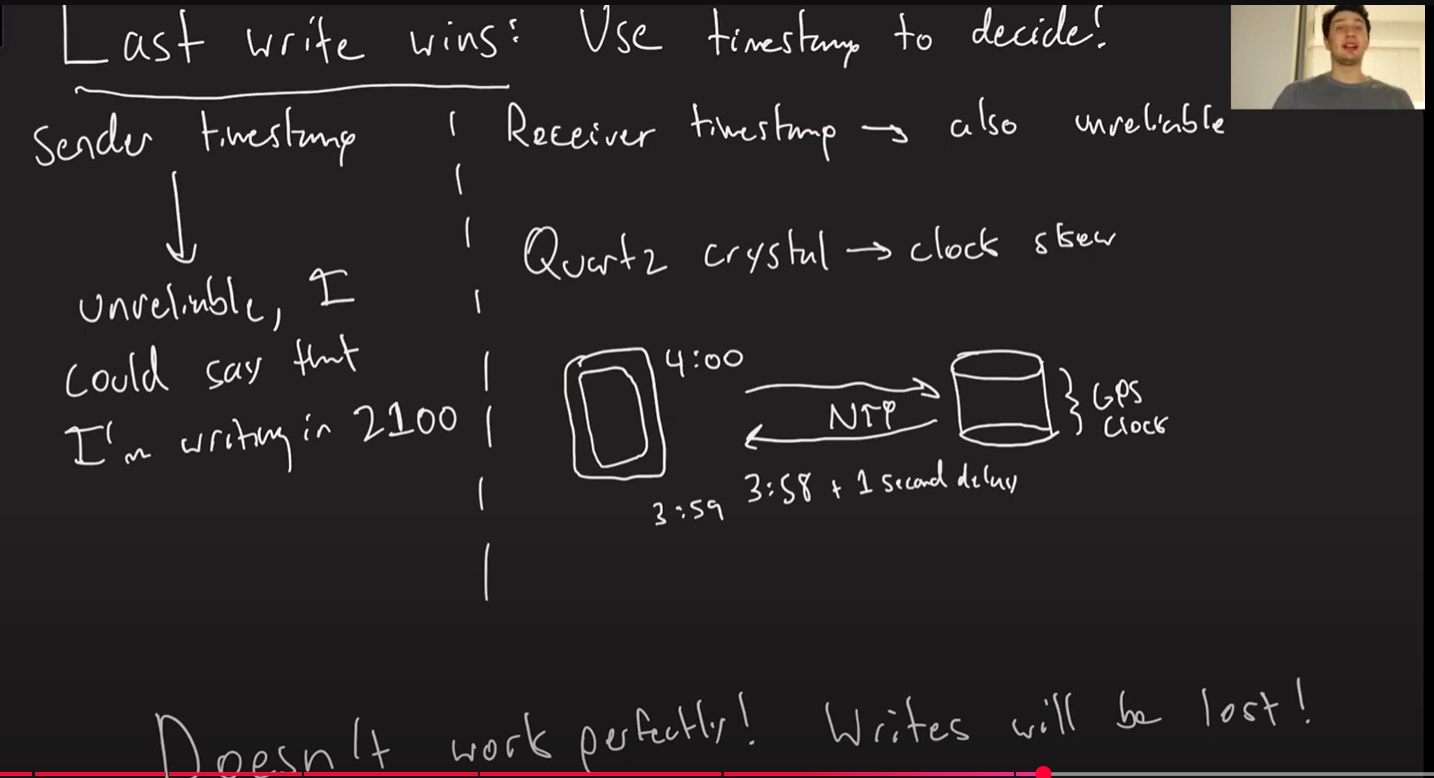 Last write wins: Use timestamp to decide!
Sender timestamp
unreliable, I
could say that
I'm writing in 2100
Receiver timestamp → also unreliable
Quartz crystal → clock skew
4:00
NTP
GPS
Clock
3:58 + 1 second delay
3:59
Doesn't work perfectly! Writes will be lost!